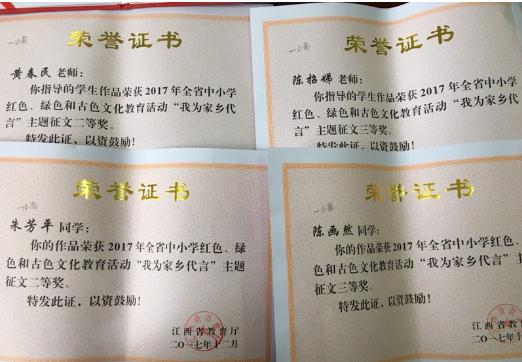 一小南
荣誉证书
黄春民老师:
你指导的学生作品荣获2017年全省中小学
红色、绿色和古色文化教育活动“我为家乡代
言”主题征文二等奖。
特发此证,以资鼓励!
一小南
荣誉证书
陈招娣老师:
你指导的学生作品荣获2017年全省中小学
红色、绿色和古色文化教育活动“我为家乡代
言”主题征文三等奖。
特发此证,以资鼓励!
一小南
荣誉证书
朱芳平同学:
你的作品荣获2017年全省中小学红色、绿
色和古色文化教育活动“我为家乡代言”主题
征文二等奖。
特发此证,以资鼓励!
江西省教育厅
二〇一七年十二月
一小南
荣誉证书
陈画然同学:
你的作品荣获2017年全省中小学红色、
色和古色文化教育活动“我为家乡代言”
征文三等奖。
特发此证,以资鼓励!
江西省教育厅
二〇一七年十二